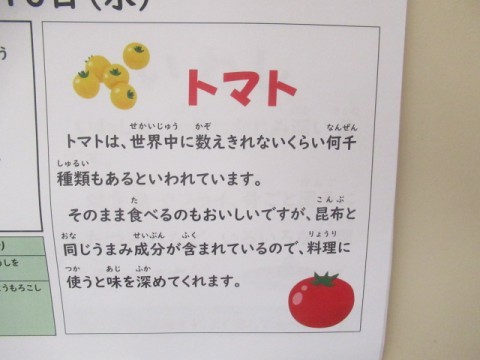 日(水)
トマト
トマトは、世界中に数えきれないくらい何千
種類もあるといわれています。
そのまま食べるのもおいしいですが、昆布と
同じうまみ成分が含まれているので、料理に
使うと味を深めてくれます。
せかいじゅう かぞ なんぜん
しゅるい
た こんぶ
おな せいぶん ふく りょうり
つか あじ ふか
う
り
しを
うもろこし